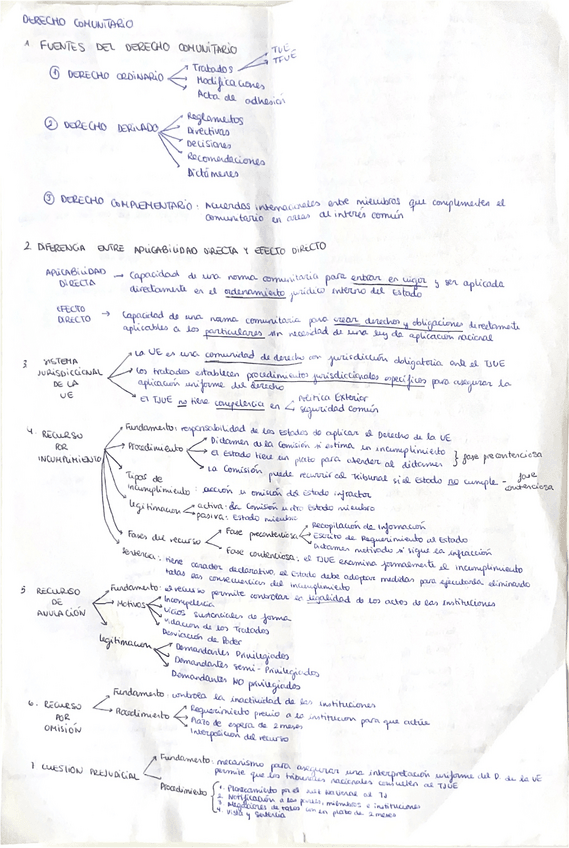 DERECHO COMUNITARIO
1 FUENTES DEL DERECHO COMUNITARIO
① DERECHO ORDINARIO
Tratados
TUE
TFUE
Modificaciones
Acta de adhesión
② DERECHO DERIVADO
Reglamentos
Directivas
Decisiones
Recomendaciones
Dictámenes
③ DERECHO COMPLEMENTARIO: Acuerdos internacionales entre miembros que complementes el
comunitario en areas al interés común
2 DIFERENCIA ENTRE APLICABILIDAD DIRECTA Y EFECTO DIRECTO
APLICABILIDAD DIRECTA → Capacidad de una norma comunitaria para entrar en vigor y ser aplicada
directamente en el ordenamiento jurídico interno del Estado
EFECTO DIRECTO → Capacidad de una norma comunitaria para crear derechos y obligaciones directamente
aplicables a los particulares sin necesidad de una ley de aplicación nacional
3 SISTEMA JURISDICCIONAL DE LA UE
La UE es una comunidad de derecho con jurisdicción obligatoria ante el TJUE
Los tratados establecen procedimientos jurisdiccionales específicos para asegurar la
aplicación uniforme del derecho
El TJUE no tiene competencia en
Política Exterior
Seguridad común
4. RECURSO POR INCUMPLIMIENTO
Fundamento: responsabilidad de los Estados de aplicar el Derecho de la UE
Procedimiento
Dictamen de la Comisión si estima un incumplimiento
el Estado tiene un plazo para atender al dictamen
fase precontenciosa
La Comisión puede recurrir al Tribunal si el Estado no cumple - fase contenciosa
Tipos de incumplimiento: acción u omisión del Estado infractor
Legitimacion
activa: de Comisión u otro Estado miembro
pasiva: Estado miembro
Fases del recurso
Fase precontenciosa
Recopilación de Información
Escrito de Requerimiento al Estado
Dictamen motivado si sigue la infracción
Fase contenciosa: el TJUE examina formalmente el incumplimiento
Sentencia: tiene carácter declarativo, el Estado debe adoptar medidas para ejecutarla eliminando
todas las consecuencias del incumplimiento
5 RECURSO DE ANULACIÓN
Fundamento: el recurso permite controlar la legalidad de los actos de las instituciones
Motivos
Incompetencia
Vicios sustanciales de forma
Violación de los Tratados
Desviación de Poder
Legitimacion
Demandantes Privilegiados
Demandantes Semi-Privilegiados
Demandantes NO privilegiados
6. RECURSO POR OMISIÓN
Fundamento: controla la inactividad de las instituciones
Procedimiento
Requerimiento previo a la institucion para que actúe
Plazo de espera de 2 meses
Interposición del recurso
7 CUESTION PREJUDICIAL
Fundamento: mecanismo para asegurar una interpretación uniforme del D. de la UE
permite que los tribunales nacionales consulten al TJUE
Procedimiento
1. Planteamiento por el Nacional al TJ
2. Notificación a las partes, miembros e instituciones
3. con un plazo de 2 meses
4. Vista y sentencia